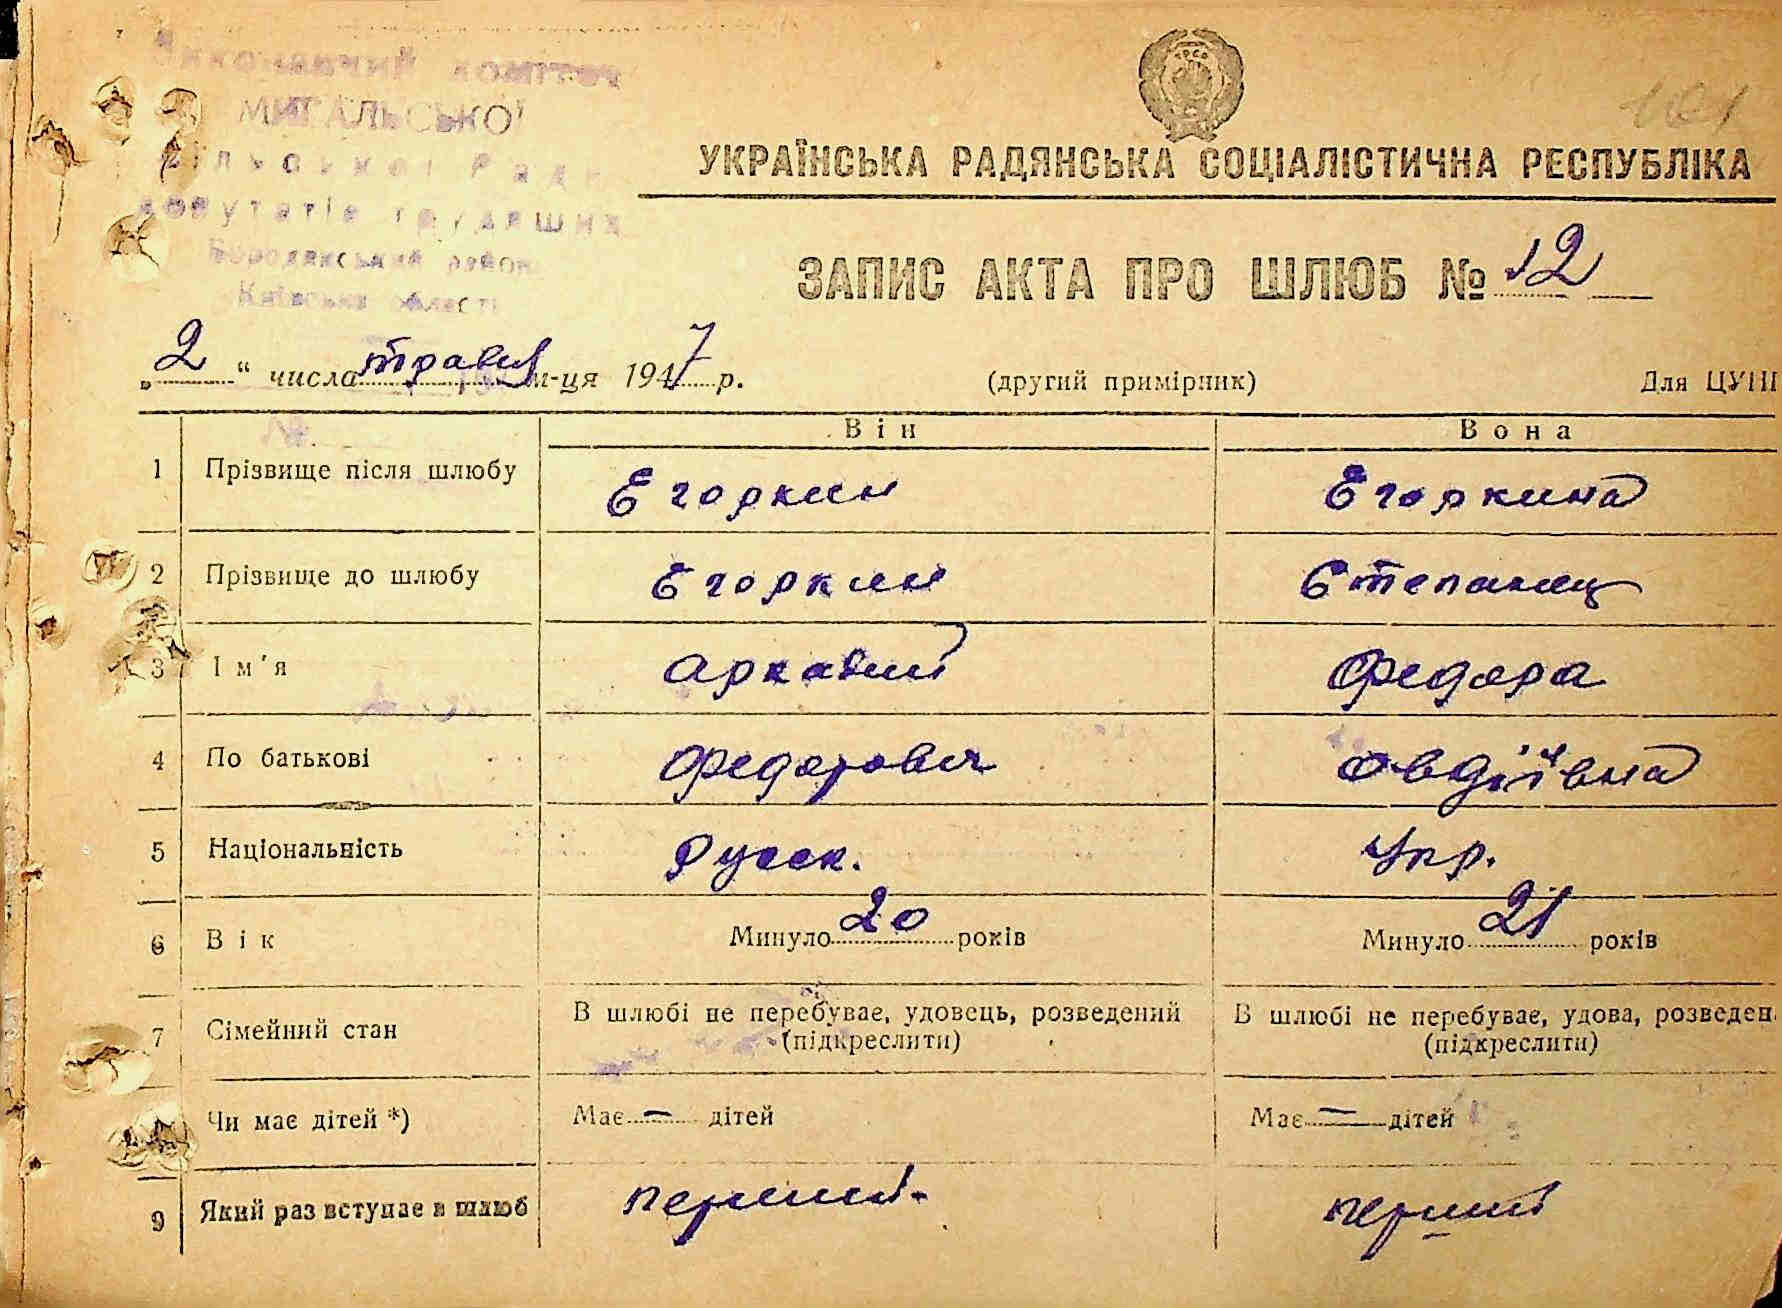 Виконавчий комітет
МИГАЛЬСЬКОЇ
сільської Ради
депутатів трудящих
Бородянський район
Київська область
161
УКРАЇНСЬКА РАДЯНСЬКА СОЦІАЛІСТИЧНА РЕСПУБЛІКА
ЗАПИС АКТА ПРО ШЛЮБ № 12
„ 2 “ числа травня м-ця 1947 р. (другий примірник) Для ЦУНГ
№
Він Вона
1 Прізвище після шлюбу Егоркин Егоркина
2 Прізвище до шлюбу Егоркин Степанец
3 Ім'я Аркадий Федора
4 По батькові Федорович Овдіївна
5 Національність Русск. Укр.
6 Вік Минуло 20 років Минуло 21 років
7 Сімейний стан В шлюбі не перебуває, удовець, розведений (підкреслити) В шлюбі не перебуває, удова, розведена (підкреслити)
Чи має дітей *) Має — дітей Має — дітей
9 Який раз вступає в шлюб перший перший